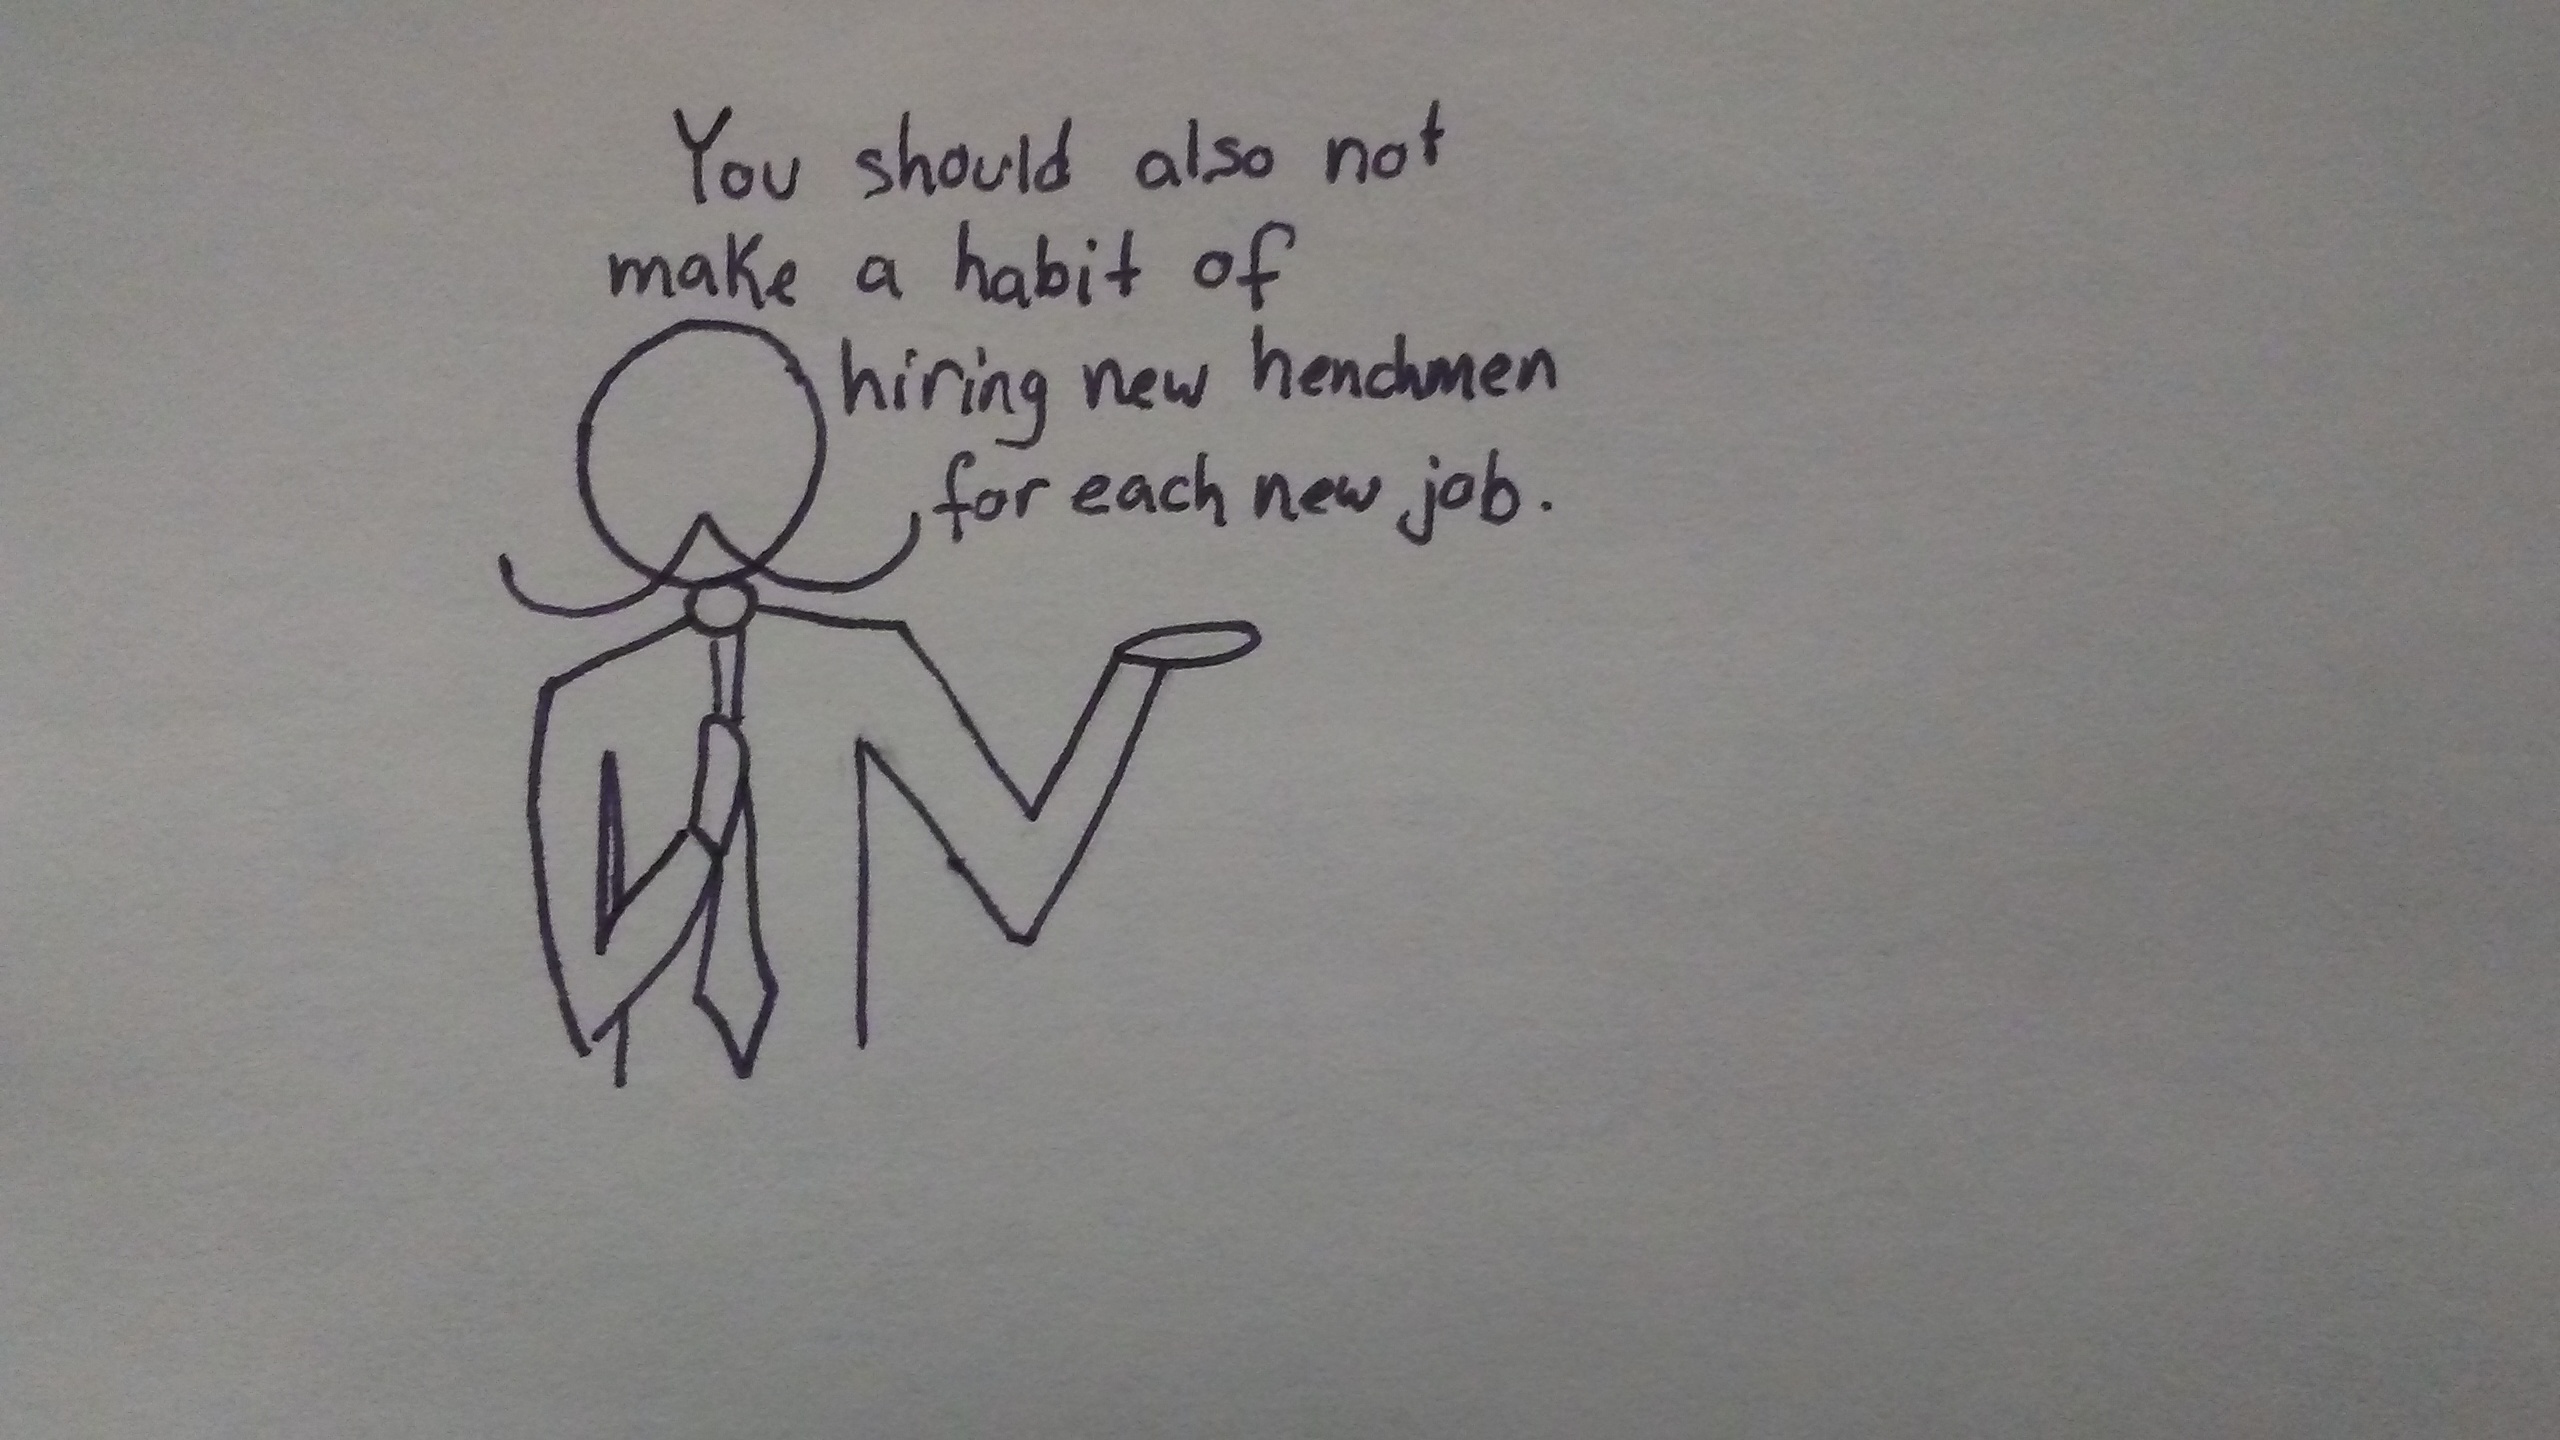 You should also not
make a habit of
hiring new henchmen
for each new job.